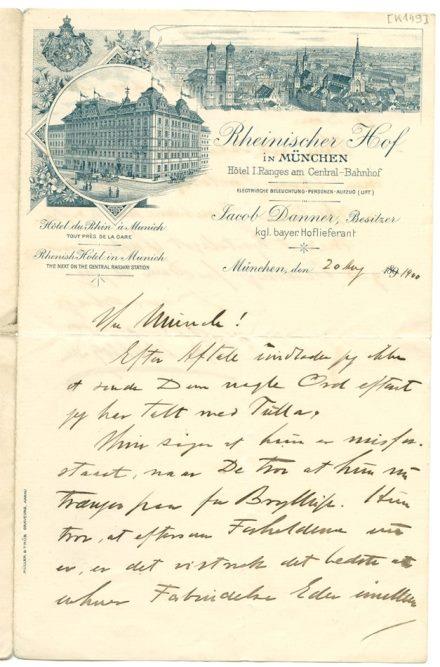 [K149]
Rheinischer Hof
in MÜNCHEN
Hôtel I. Ranges am Central-Bahnhof
ELECTRISCHE BELEUCHTUNG - PERSONEN-AUFZUG (LIFT)
Jacob Danner, Besitzer
kgl. bayer. Hoflieferant
München, den 20 189 1900
Hôtel du Rhin à Munich
TOUT PRÈS DE LA GARE
Rhenish Hôtel in Munich
THE NEXT ON THE CENTRAL RAILWAY STATION
Hr Munch!
Efter Aftale undlader jeg ikke
at sende Dem nogle Ord efterat
jeg har talt med Tulla.
Hun siger at hun er misfor-
staaet, naar De tror at hun nu
trænger paa for Bryllup. Hun
tror, at eftersom Forholdene nu
er, er det vistnok det bedste at
enhver Forbindelse Eder imellem
MÜLLER & TRÜB, AARAU